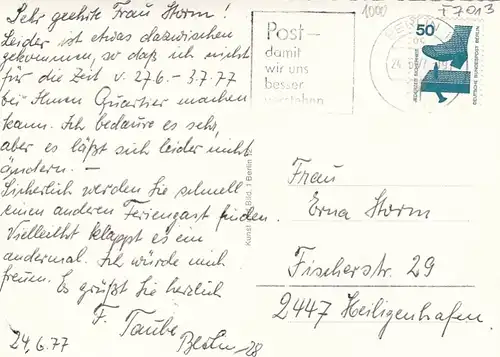 Sehr geehrte Frau Storm!
Leider ist etwas dazwischen
gekommen, so daß ich nicht
für die Zeit v. 27.6. - 3.7.77
bei Ihnen Quartier machen
kann. Ich bedaure es sehr,
aber es läßt sich leider nicht
ändern. -
Sicherlich werden Sie schnell
einen anderen Feriengast finden.
Vielleicht klappt es ein
andermal. Ich würde mich
freuen.
Es grüßt Sie herzlich
F. Taube
24.6.77 Berlin-28
Kunst und Bild, 1 Berlin
1000
F 7013
Post-
damit
wir uns
besser
verstehen
BERLIN
50
DEUTSCHE BUNDESPOST BERLIN
Frau
Erna Storm
Fischerstr. 29
2447 Heiligenhafen.